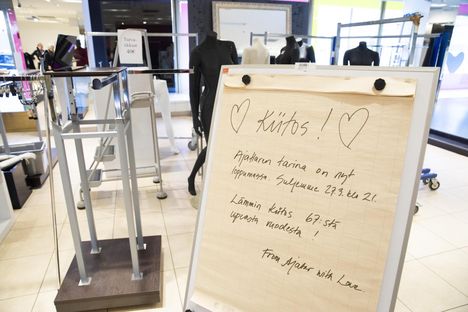 Kiitos!
Ajattaren tarina on nyt
loppumassa. Suljemme 27.9. klo 21.
Lämmin kiitos 67:stä
upeasta vuodesta!
From Ajatar with Love